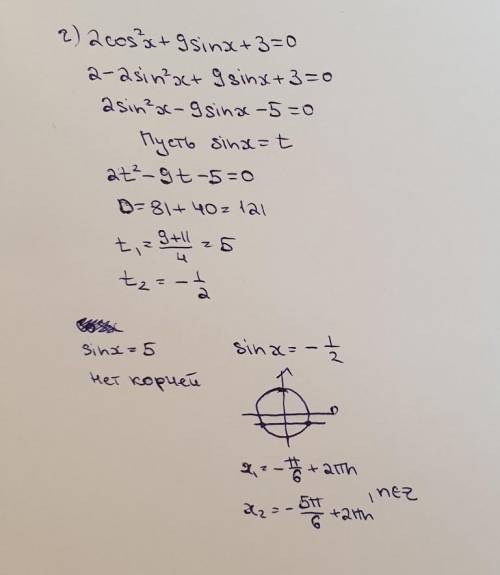 г) 2cos²x + 9sinx + 3 = 0
2 - 2sin²x + 9sinx + 3 = 0
2sin²x - 9sinx - 5 = 0
Пусть sinx = t
2t² - 9t - 5 = 0
D = 81 + 40 = 121
t₁ = (9+11)/4 = 5
t₂ = -1/2
sinx = 5
нет корней
sinx = -1/2
x₁ = -π/6 + 2πn
x₂ = -5π/6 + 2πn, n∈Z